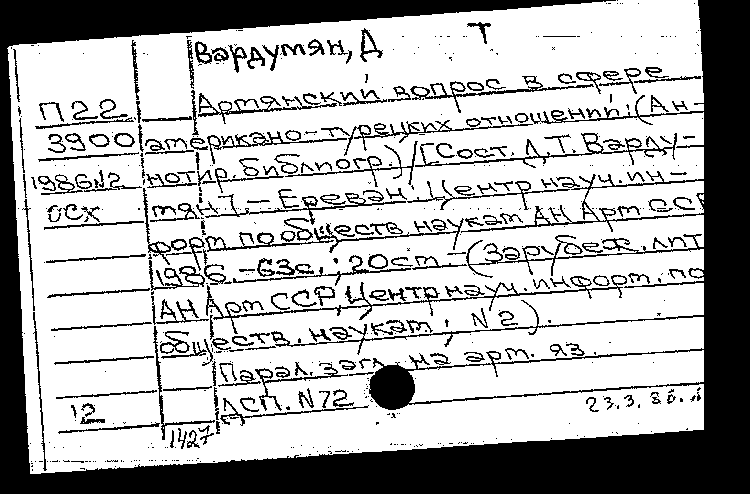 Вардумян, Д Т
Армянский вопрос в сфере
П22
3900 американо-турецких отношений: (Ан-
нотир. библиогр.) / [Сост. Д. Т. Варду-
1986 N2 мян]. - Ереван: Центр науч. ин-
ОСХ
форм. по обществ. наукам АН АрмССР
1986. - 63с.; 20см. - (Зарубеж. лит
АН АрмССР, Центр науч. информ. по
обществ. наукам; N2).
Парал. загл. на арм. яз.
12 ДСП. N72
1427 23.3.86.